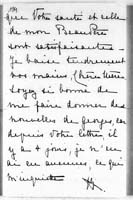 que Votre santé et celle
de mon Beau Père
sont satisfaisantes. -
Je baise tendrement
vos mains, Chère Mère
Soyez si bonne de
me faire donner des
nouvelles de Georges, car
depuis Votre lettre, il
y a 4 jours, je n'en
ai eu aucunes ce qui
m'inquiète